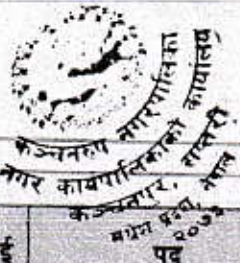 कञ्चनरुप नगरपालिका
नगर कार्यपालिकाको कार्यालय
कञ्चनपुर, सप्तरी
मधेश प्रदेश, नेपाल
२०७३
पद